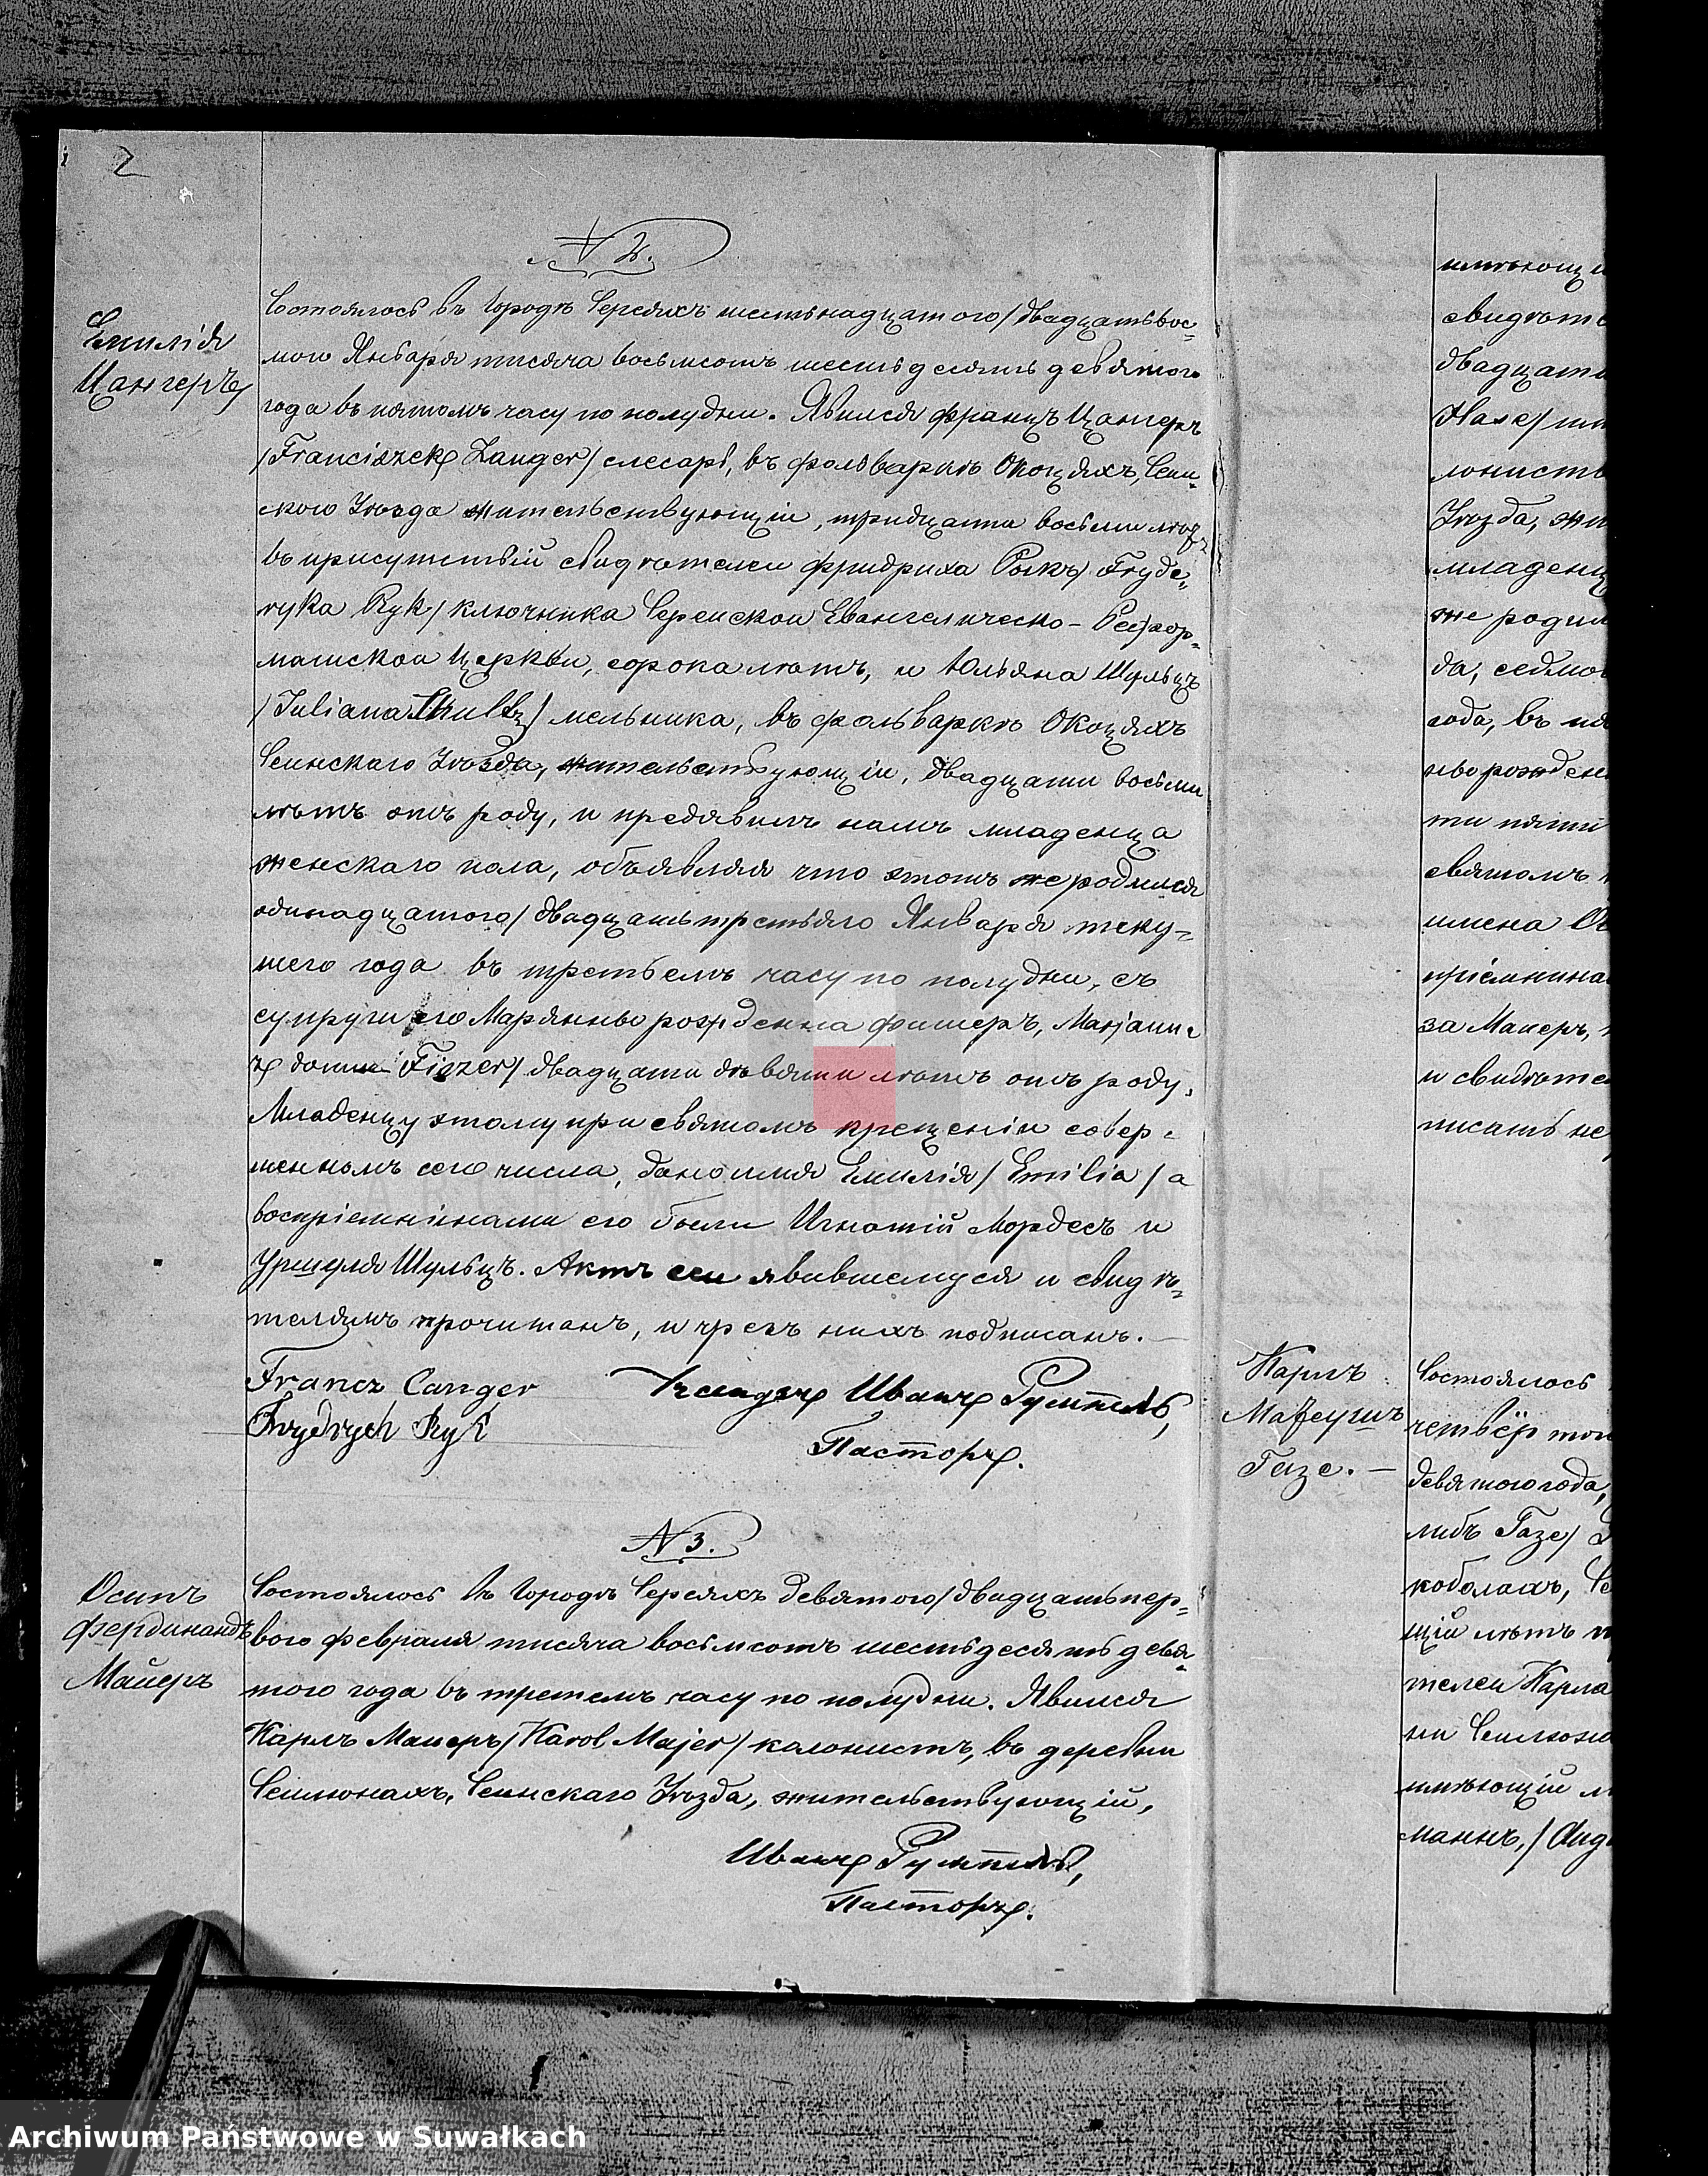 2
N 2.
Емилія
Цангеръ
Состоялось въ Городѣ Сереяхъ шестьнадцатого/двадцатьвос-
мого Января тысяча восьмсотъ шестьдесятъ девятого
года въ пятомъ часу по полудни. Явился Францъ Цангеръ
/Franciszek Zanger/ слесарь, въ фольваркѣ Окоцяхъ, Сеин-
ского Уѣзда жительствующій, тридцати восьми лѣтъ
въ присутствіи свидѣтелей Фридриха Рыкъ/ Fryde-
ryka Ryk/ ключника Серейской Евангелическо-Рефор-
матской Церкви, сорока лѣтъ, и Юльяна Шульцъ
/Juliana Shultz/ мельника, въ фольваркѣ Окоцяхъ
Сеинскаго Уѣзда, жительствующій, двадцати восьми
лѣтъ отъ роду, и предявилъ намъ младенца
женскаго пола, объявляя что этотъ же родился
одинадцатого/двадцать третьяго Января теку-
щего года въ третьемъ часу по полудни, съ
супруги его Марянны рожденна Фишеръ, Marjann-
z domu Fiszer/ двадцати девяти лѣтъ отъ роду.
Младенцу этому при святомъ крещеніи совер-
шенномъ сего числа, дано имя Емилія/Emilia/ а
воспріемниками его были Игнатій Мордесъ и
Уршуля Шульцъ. Актъ сей явившемуся и свидѣ-
телямъ прочитанъ, и чрезъ нихъ подписанъ.
Francz Canger
Frydrych Ryk
Иванъ Румпель,
Пасторъ.
N 3.
Осипъ
Фердинандъ
Майеръ
Состоялось въ Городѣ Сереяхъ девятого/двадцать пер-
вого Февраля тысяча восьмсотъ шестьдесятъ девя-
того года въ третемъ часу по полудни. Явился
Карлъ Майеръ/Karol Majer/ колонистъ, въ деревни
Сеилюнахъ, Сеинскаго Уѣзда, жительствующій,
Иванъ Румпель,
Пасторъ.
имѣющи
свидѣте
двадцати
Hase/
лонисть
Уѣзда, жи
младенц
же родил
да, седмо
года, въ
ны рожден
ти пяти
святомъ
имена
пріемника
за Майеръ,
и свидѣте
писать не
Карлъ
Матеушъ
Газе.
Состоялось
четвёртого
девятого года,
либъ Газе/
коболахъ, Се
щій лѣтъ
телей Карла
ни Сеилюна
имѣющій
манъ,/
ARCHIWUM PAŃSTWOWE
W SUWAŁKACH
Archiwum Państwowe w Suwałkach